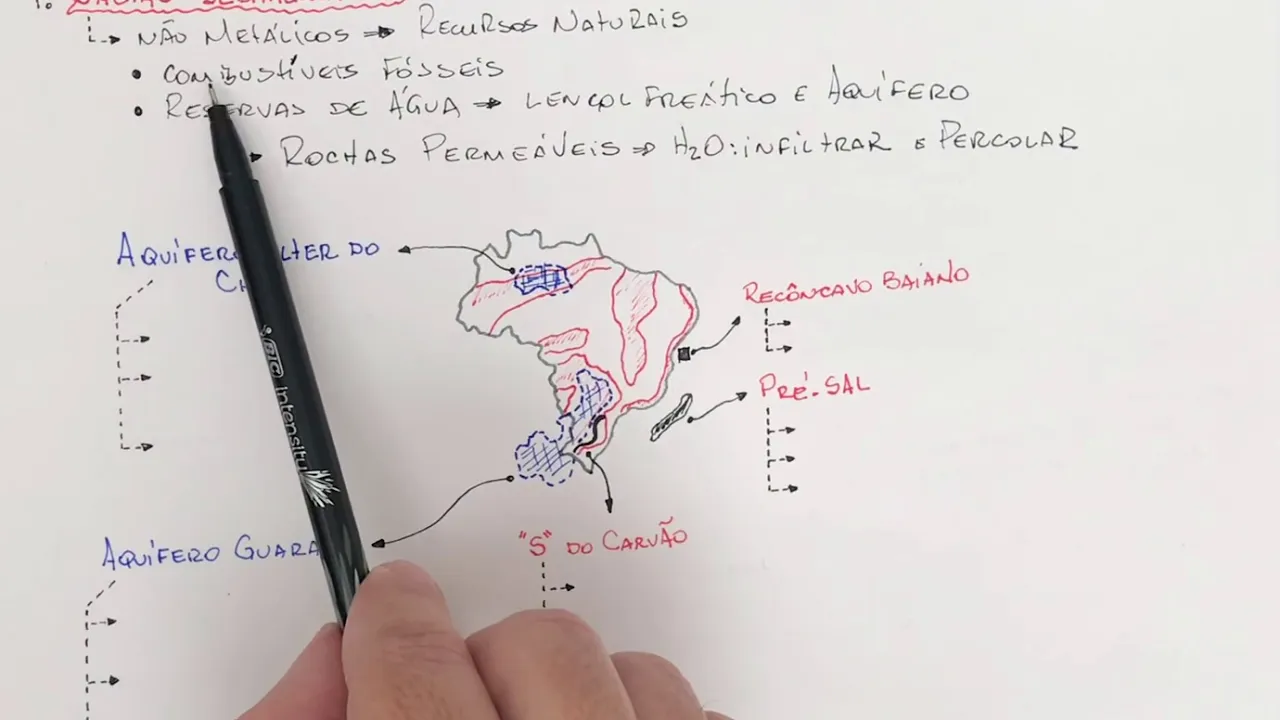 NÃO METÁLICOS → RECURSOS NATURAIS
• COMBUSTÍVEIS FÓSSEIS
• RESERVAS DE ÁGUA → LENÇOL FREÁTICO E AQUÍFERO
ROCHAS PERMEÁVEIS ⇒ H2O: INFILTRAR E PERCOLAR
AQUÍFERO DO
RECÔNCAVO BAIANO
PRÉ-SAL
"S" DO CARVÃO
AQUÍFERO
BIC Intensity